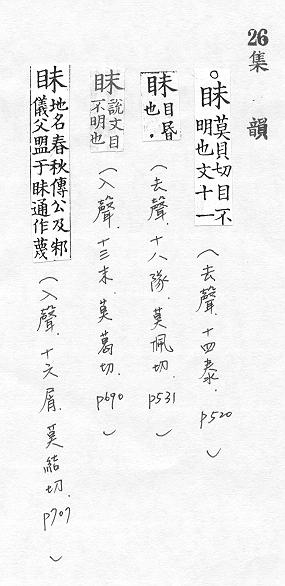 26集 韻
。眜 莫貝切目不
明也文十一
(去聲. 十四泰. p520)
眛 目昏
也。
(去聲. 十八隊. 莫佩切. p531)
眜 說文目
不明也
(入聲. 十三末. 莫葛切. p690)
眜 地名春秋傳公及邾
儀父盟于眜通作蔑
(入聲. 十六屑. 莫結切. p707)